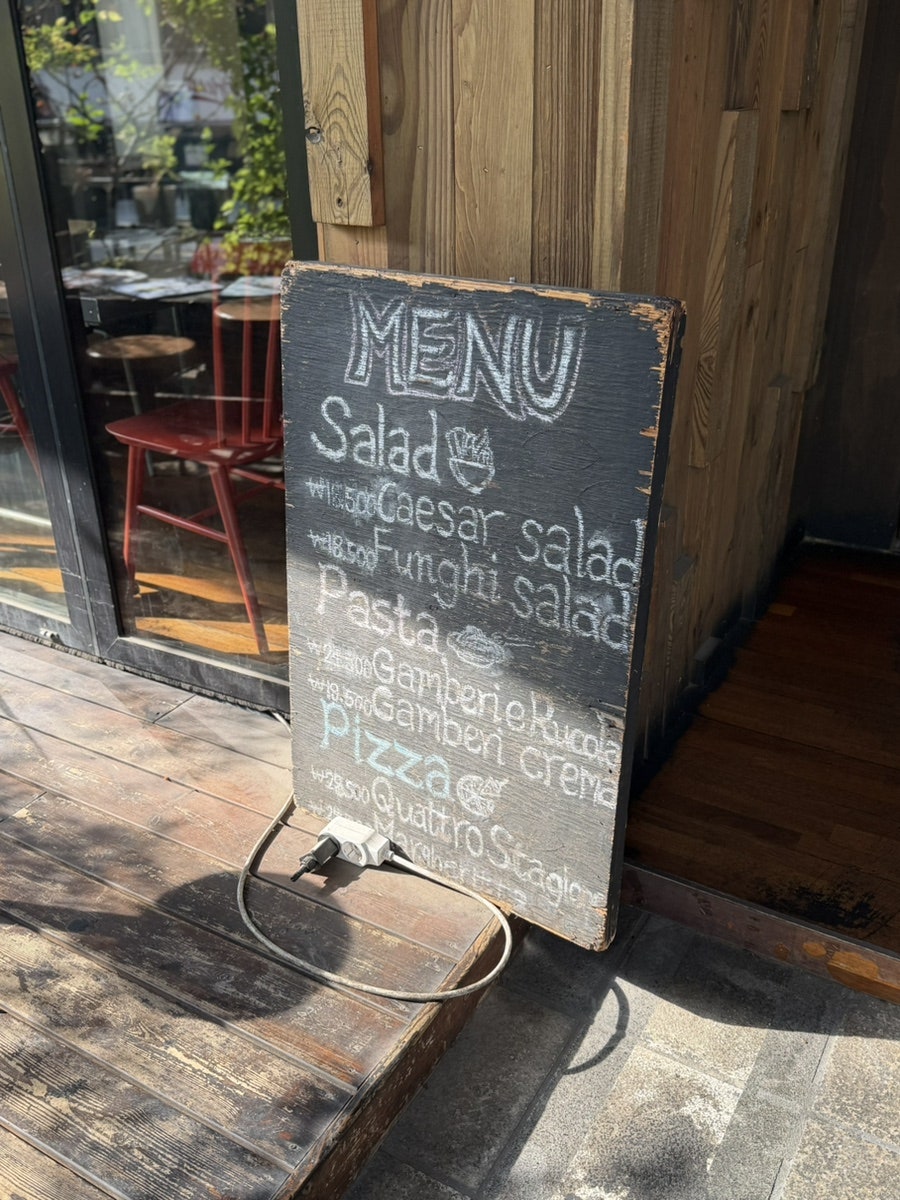 MENU
Salad
Caesar salad
₩18.500 Funghi salad
Pasta
Gamberi e Rucola
₩18.500 Gamberi crema
Pizza
₩28.500 Quattro Stagione
Margherita